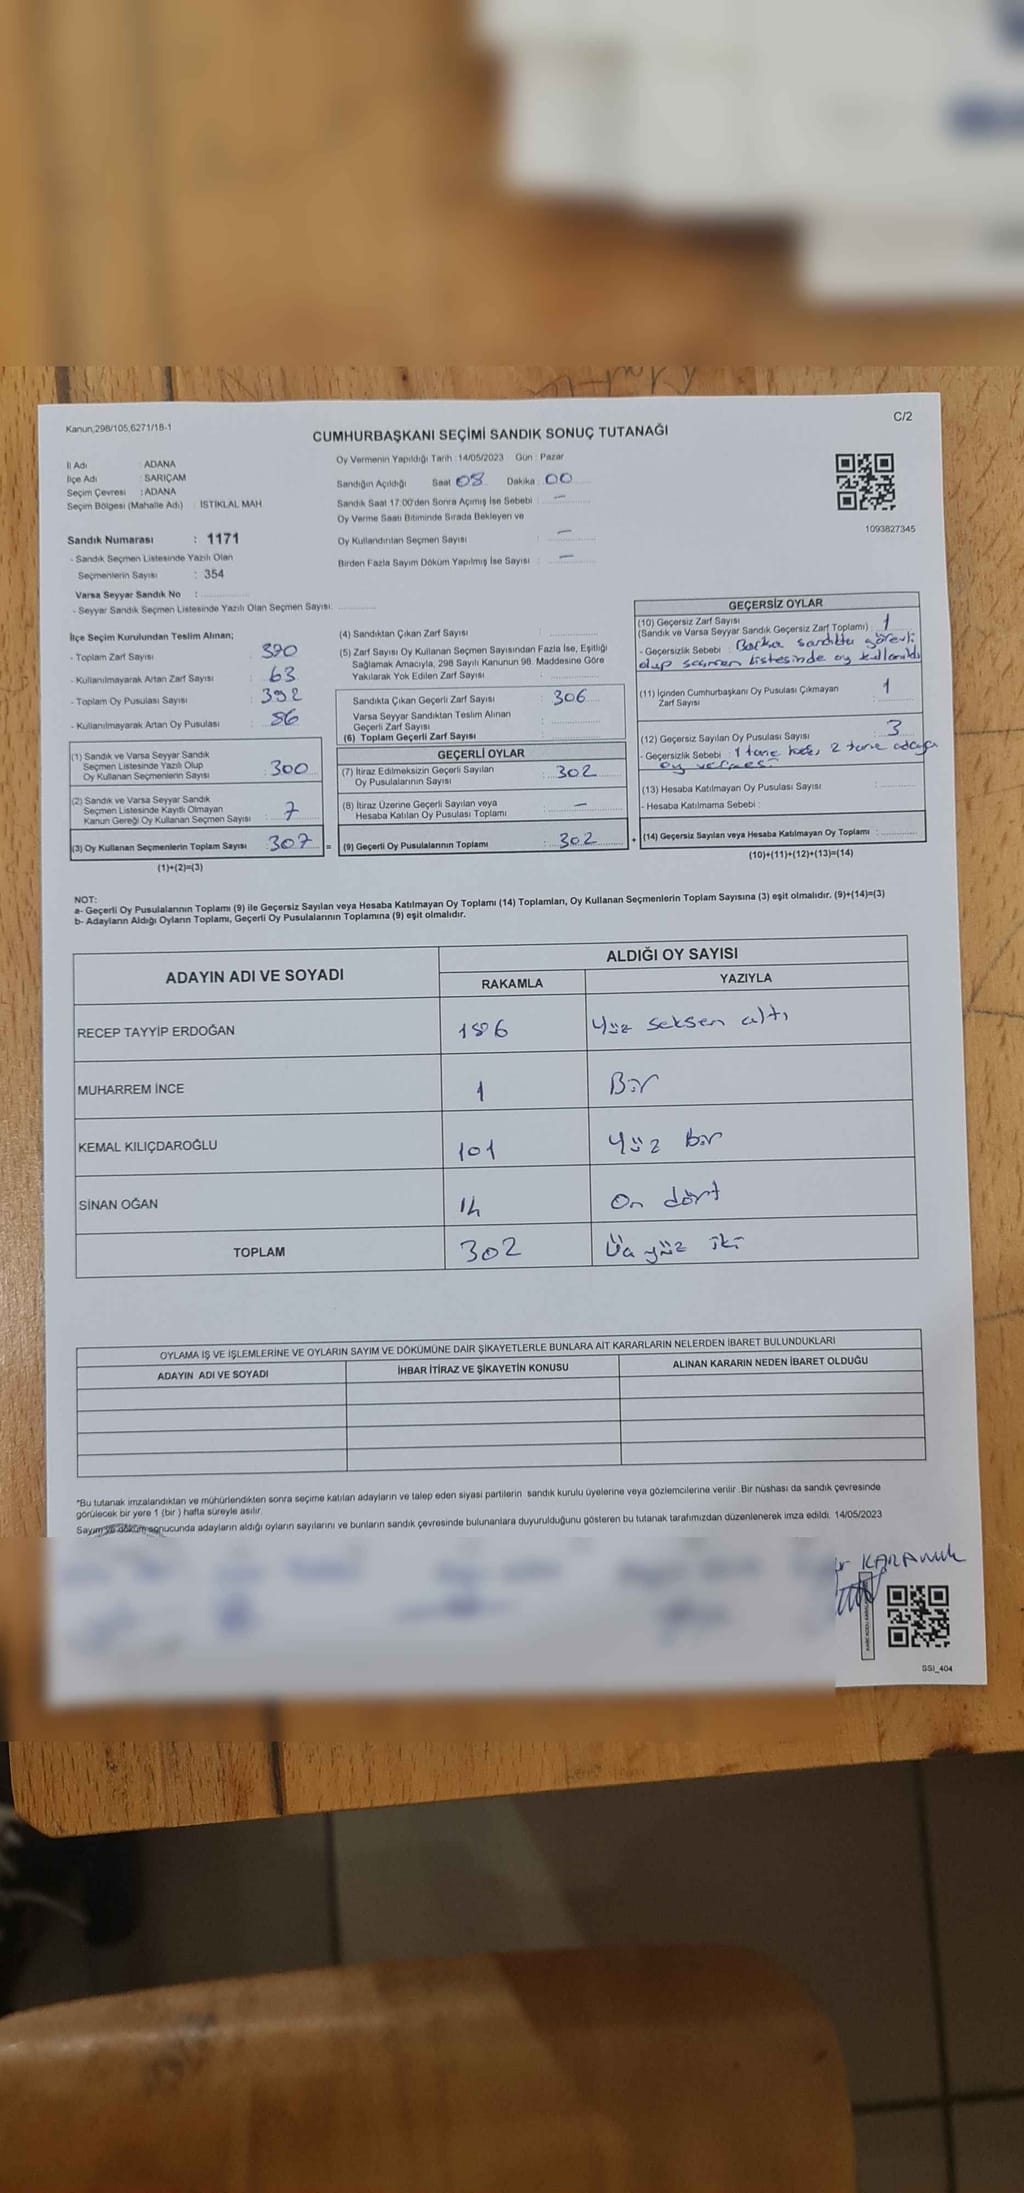 Kanun,298/105,6271/18-1
C/2
CUMHURBAŞKANI SEÇİMİ SANDIK SONUÇ TUTANAĞI
İl Adı : ADANA
İlçe Adı : SARIÇAM
Seçim Çevresi : ADANA
Seçim Bölgesi (Mahalle Adı) : İSTİKLAL MAH
Sandık Numarası : 1171
- Sandık Seçmen Listesinde Yazılı Olan
Seçmenlerin Sayısı : 354
Varsa Seyyar Sandık No :
- Seyyar Sandık Seçmen Listesinde Yazılı Olan Seçmen Sayısı:
Oy Vermenin Yapıldığı Tarih : 14/05/2023 Gün : Pazar
Sandığın Açıldığı Saat 08 Dakika : 00
Sandık Saat 17:00'den Sonra Açımış İse Sebebi : —
Oy Verme Saati Bitiminde Sırada Bekleyen ve
Oy Kullandırılan Seçmen Sayısı : —
Birden Fazla Sayım Döküm Yapılmış İse Sayısı : —
1093827345
İlçe Seçim Kurulundan Teslim Alınan;
- Toplam Zarf Sayısı : 370
- Kullanılmayarak Artan Zarf Sayısı : 63
- Toplam Oy Pusulası Sayısı : 392
- Kullanılmayarak Artan Oy Pusulası : 86
(1) Sandık ve Varsa Seyyar Sandık
Seçmen Listesinde Yazılı Olup
Oy Kullanan Seçmenlerin Sayısı : 300
(2) Sandık ve Varsa Seyyar Sandık
Seçmen Listesinde Kayıtlı Olmayan
Kanun Gereği Oy Kullanan Seçmen Sayısı : 7
(3) Oy Kullanan Seçmenlerin Toplam Sayısı : 307 =
(1)+(2)=(3)
(4) Sandıktan Çıkan Zarf Sayısı :
(5) Zarf Sayısı Oy Kullanan Seçmen Sayısından Fazla İse, Eşitliği
Sağlamak Amacıyla, 298 Sayılı Kanunun 98. Maddesine Göre
Yakılarak Yok Edilen Zarf Sayısı :
Sandıkta Çıkan Geçerli Zarf Sayısı : 306
Varsa Seyyar Sandıktan Teslim Alınan
Geçerli Zarf Sayısı :
(6) Toplam Geçerli Zarf Sayısı :
GEÇERLİ OYLAR
(7) İtiraz Edilmeksizin Geçerli Sayılan
Oy Pusulalarının Sayısı : 302
(8) İtiraz Üzerine Geçerli Sayılan veya
Hesaba Katılan Oy Pusulası Toplamı : —
(9) Geçerli Oy Pusulalarının Toplamı : 302 +
GEÇERSİZ OYLAR
(10) Geçersiz Zarf Sayısı
(Sandık ve Varsa Seyyar Sandık Geçersiz Zarf Toplamı) : 1
- Geçersizlik Sebebi : Başka sandıkta görevli
olup seçmen listesinde oy kullanıldı
(11) İçinden Cumhurbaşkanı Oy Pusulası Çıkmayan
Zarf Sayısı : 1
(12) Geçersiz Sayılan Oy Pusulası Sayısı : 3
- Geçersizlik Sebebi : 1 tane 2 tane adaya
oy vermesi
(13) Hesaba Katılmayan Oy Pusulası Sayısı :
- Hesaba Katılmama Sebebi :
(14) Geçersiz Sayılan veya Hesaba Katılmayan Oy Toplamı :
(10)+(11)+(12)+(13)=(14)
NOT:
a- Geçerli Oy Pusulalarının Toplamı (9) ile Geçersiz Sayılan veya Hesaba Katılmayan Oy Toplamı (14) Toplamları, Oy Kullanan Seçmenlerin Toplam Sayısına (3) eşit olmalıdır. (9)+(14)=(3)
b- Adayların Aldığı Oyların Toplamı, Geçerli Oy Pusulalarının Toplamına (9) eşit olmalıdır.
ADAYIN ADI VE SOYADI
ALDIĞI OY SAYISI
RAKAMLA YAZIYLA
RECEP TAYYİP ERDOĞAN 186 Yüz seksen altı
MUHARREM İNCE 1 Bir
KEMAL KILIÇDAROĞLU 101 Yüz bir
SİNAN OĞAN 14 On dört
TOPLAM 302 Üç yüz iki
OYLAMA İŞ VE İŞLEMLERİNE VE OYLARIN SAYIM VE DÖKÜMÜNE DAİR ŞİKAYETLERLE BUNLARA AİT KARARLARIN NELERDEN İBARET BULUNDUKLARI
ADAYIN ADI VE SOYADI İHBAR İTİRAZ VE ŞİKAYETİN KONUSU ALINAN KARARIN NEDEN İBARET OLDUĞU
*Bu tutanak imzalandıktan ve mühürlendikten sonra seçime katılan adayların ve talep eden siyasi partilerin sandık kurulu üyelerine veya gözlemcilerine verilir. Bir nüshası da sandık çevresinde
görülecek bir yere 1 (bir) hafta süreyle asılır.
Sayım ve döküm sonucunda adayların aldığı oyların sayılarını ve bunların sandık çevresinde bulunanlara duyurulduğunu gösteren bu tutanak tarafımızdan düzenlenerek imza edildi. 14/05/2023
SSI_404